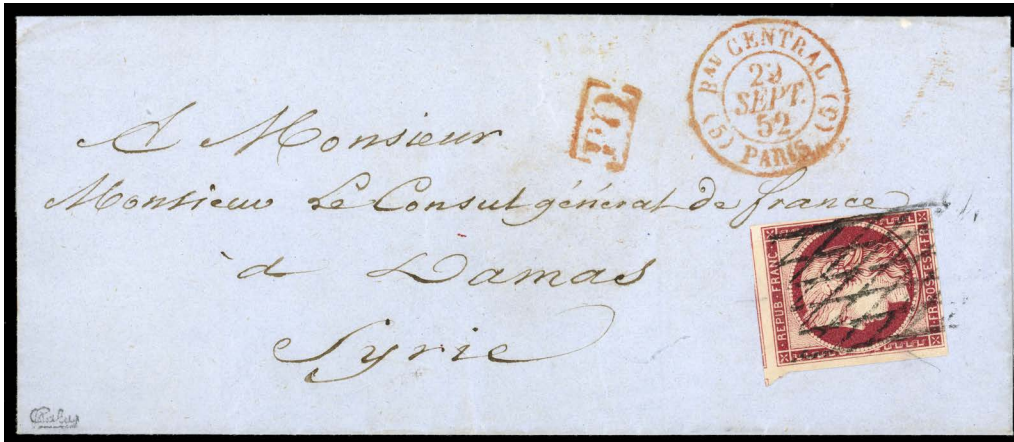 Bau CENTRAL (9)
22
SEPT.
52
(5) PARIS
P.D.
A Monsieur
Monsieur Le Consul général de france
à Damas
Syrie
REPUB. FRANC.